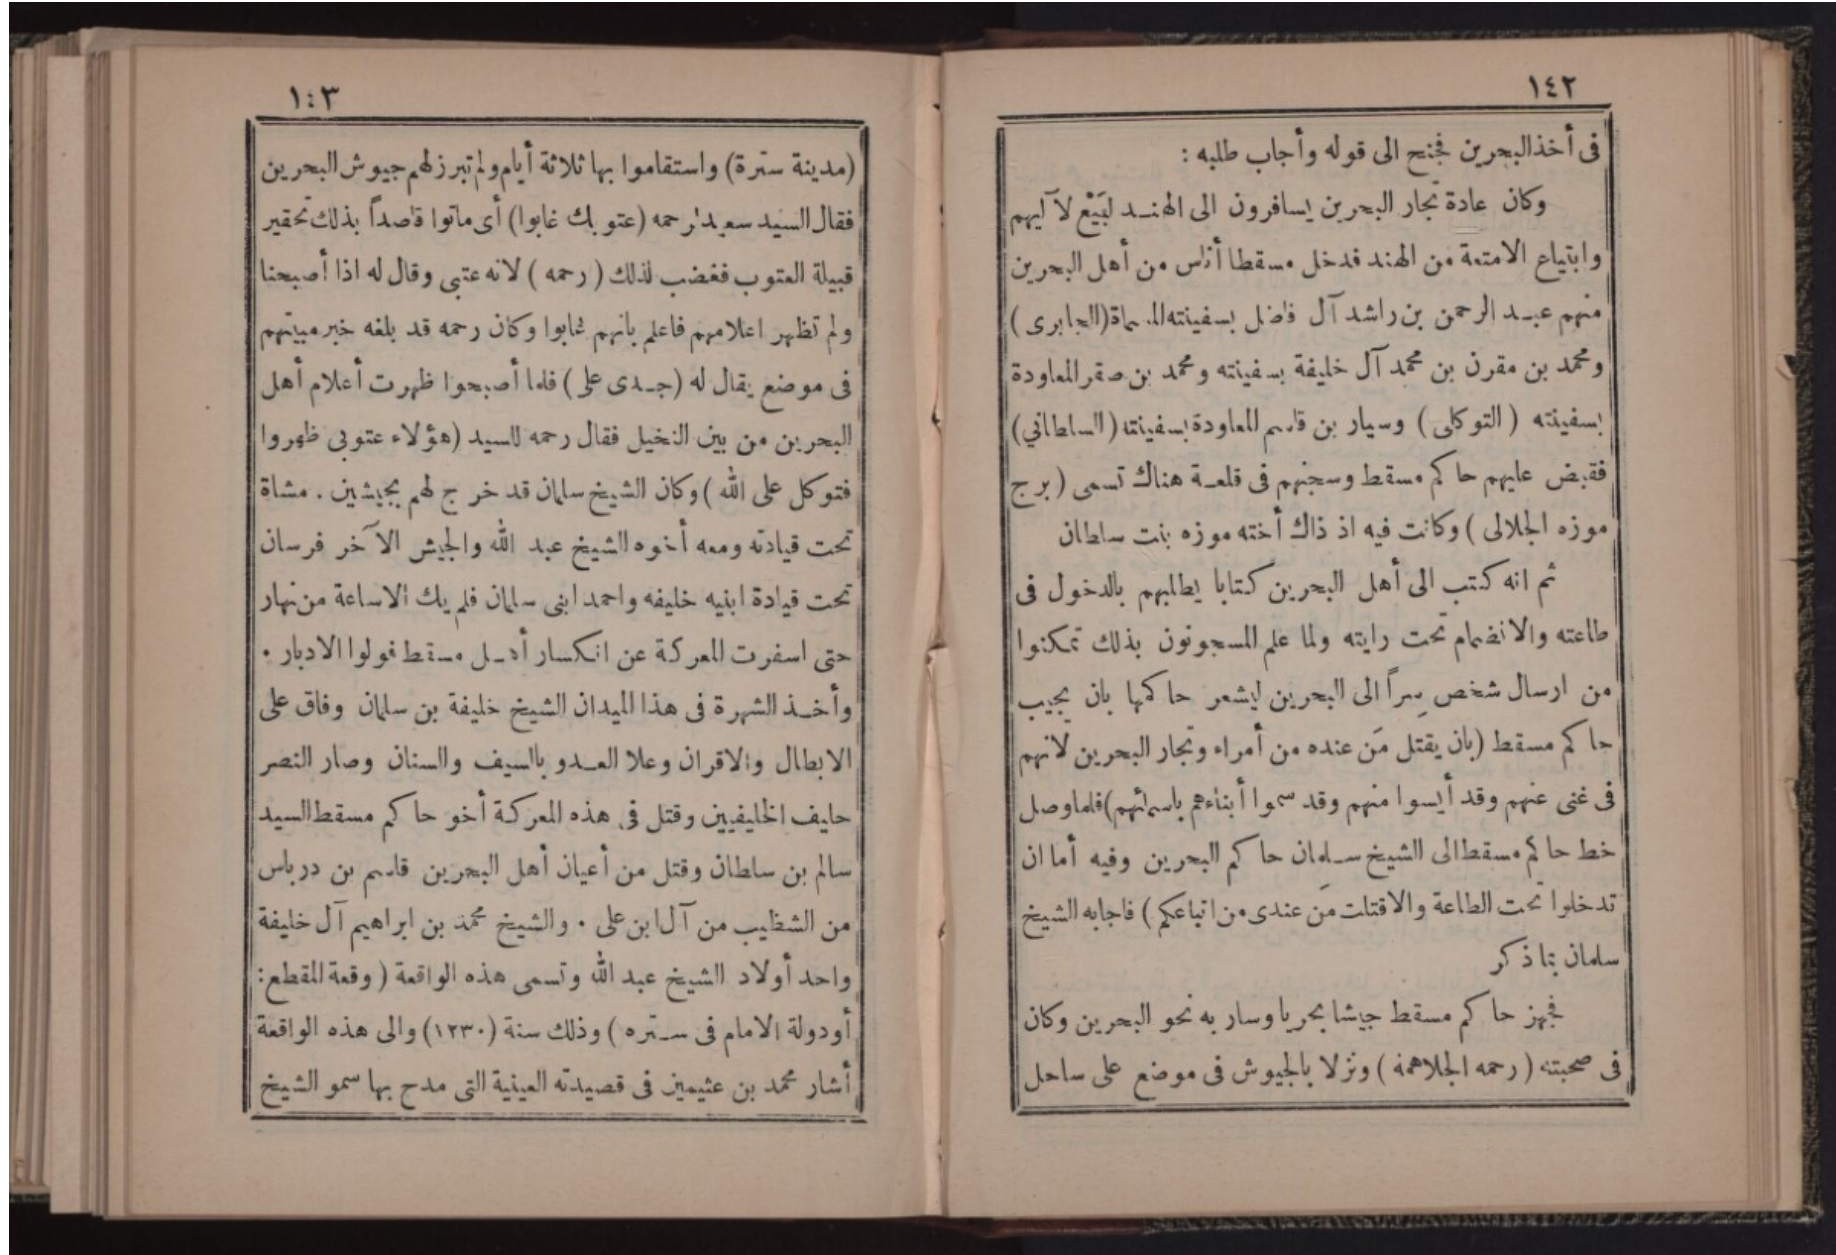 ١٤٢
فى أخذ البحرين فجنح الى قوله وأجاب طلبه :
وكان عادة تجار البحرين يسافرون الى الهنـد لبَيْع لآليهم
وابتياع الامتعة من الهند فدخل مسقطا أناس من أهل البحرين
منهم عبـد الرحمن بن راشد آل فاضل بسفينته المسماة (الجابرى)
ومحمد بن مقرن بن محمد آل خليفة بسفينته ومحمد بن صقر المعاودة
بسفينته ( التوكلى ) وسيار بن قاسم المعاودة بسفينته (السلطاني)
فقبض عليهم حاكم مسقط وسجنهم فى قلعـة هناك تسمى ( برج
موزه الجلالى ) وكانت فيه اذ ذاك أخته موزه بنت سلطان
ثم انه كتب الى أهل البحرين كتابا يطلبهم بالدخول فى
طاعته والانضمام تحت رايته ولما علم المسجونون بذلك تمكنوا
من ارسال شخص سِراً الى البحرين ليشعر حاكمها بان يجيب
حاكم مسقط (بان يقتل مَن عنده من أمراء وتجار البحرين لانهم
فى غنى عنهم وقد أيسوا منهم وقد سموا أبناءهم باسمائهم) فلما وصل
خط حاكم مسقط الى الشيخ سـلمان حاكم البحرين وفيه أما ان
تدخلوا تحت الطاعة والا قتلت مَن عندى من اتباعكم ) فاجابه الشيخ
سلمان بما ذكر
فجهز حاكم مسقط جيشا بحريا وسار به نحو البحرين وكان
فى صحبته ( رحمه الجلاهمة ) ونزلا بالجيوش فى موضع على ساحل
١٤٣
(مدينة سترة) واستقاموا بها ثلاثة أيام ولم تبرز لهم جيوش البحرين
فقال السيد سعيد لرحمه (عتوبك غابوا) أى ماتوا قاصداً بذلك تحقير
قبيلة العتوب فغضب لذلك ( رحمه ) لانه عتبى وقال له اذا أصبحنا
ولم تظهر اعلامهم فاعلم بانهم غابوا وكان رحمه قد بلغه خبر مبيتهم
فى موضع يقال له (جـدى على) فلما أصبحوا ظهرت أعلام أهل
البحرين من بين النخيل فقال رحمه للسيد (هؤلاء عتوبى ظهروا
فتوكل على الله ) وكان الشيخ سلمان قد خرج لهم بجيشين . مشاة
تحت قيادته ومعه أخوه الشيخ عبد الله والجيش الآخر فرسان
تحت قيادة ابنيه خليفه واحمد ابنى سلمان فلم يك الا ساعة من نهار
حتى اسفرت المعركة عن انكسار أهـل مسقط فولوا الادبار .
وأخـذ الشهرة فى هذا الميدان الشيخ خليفة بن سلمان وفاق على
الابطال والاقران وعلا العـدو بالسيف والسنان وصار النصر
حليف الخليفيين وقتل فى هذه المعركة أخو حاكم مسقط السيد
سالم بن سلطان وقتل من أعيان أهل البحرين قاسم بن درباس
من الشظيب من آل ابن على . والشيخ محمد بن ابراهيم آل خليفة
واحد أولاد الشيخ عبد الله وتسمى هذه الواقعة ( وقعة المقطع :
أو دولة الامام فى سـتره ) وذلك سنة (١٢٣٠) والى هذه الواقعة
أشار محمد بن عثيمين فى قصيدته العينية التى مدح بها سمو الشيخ